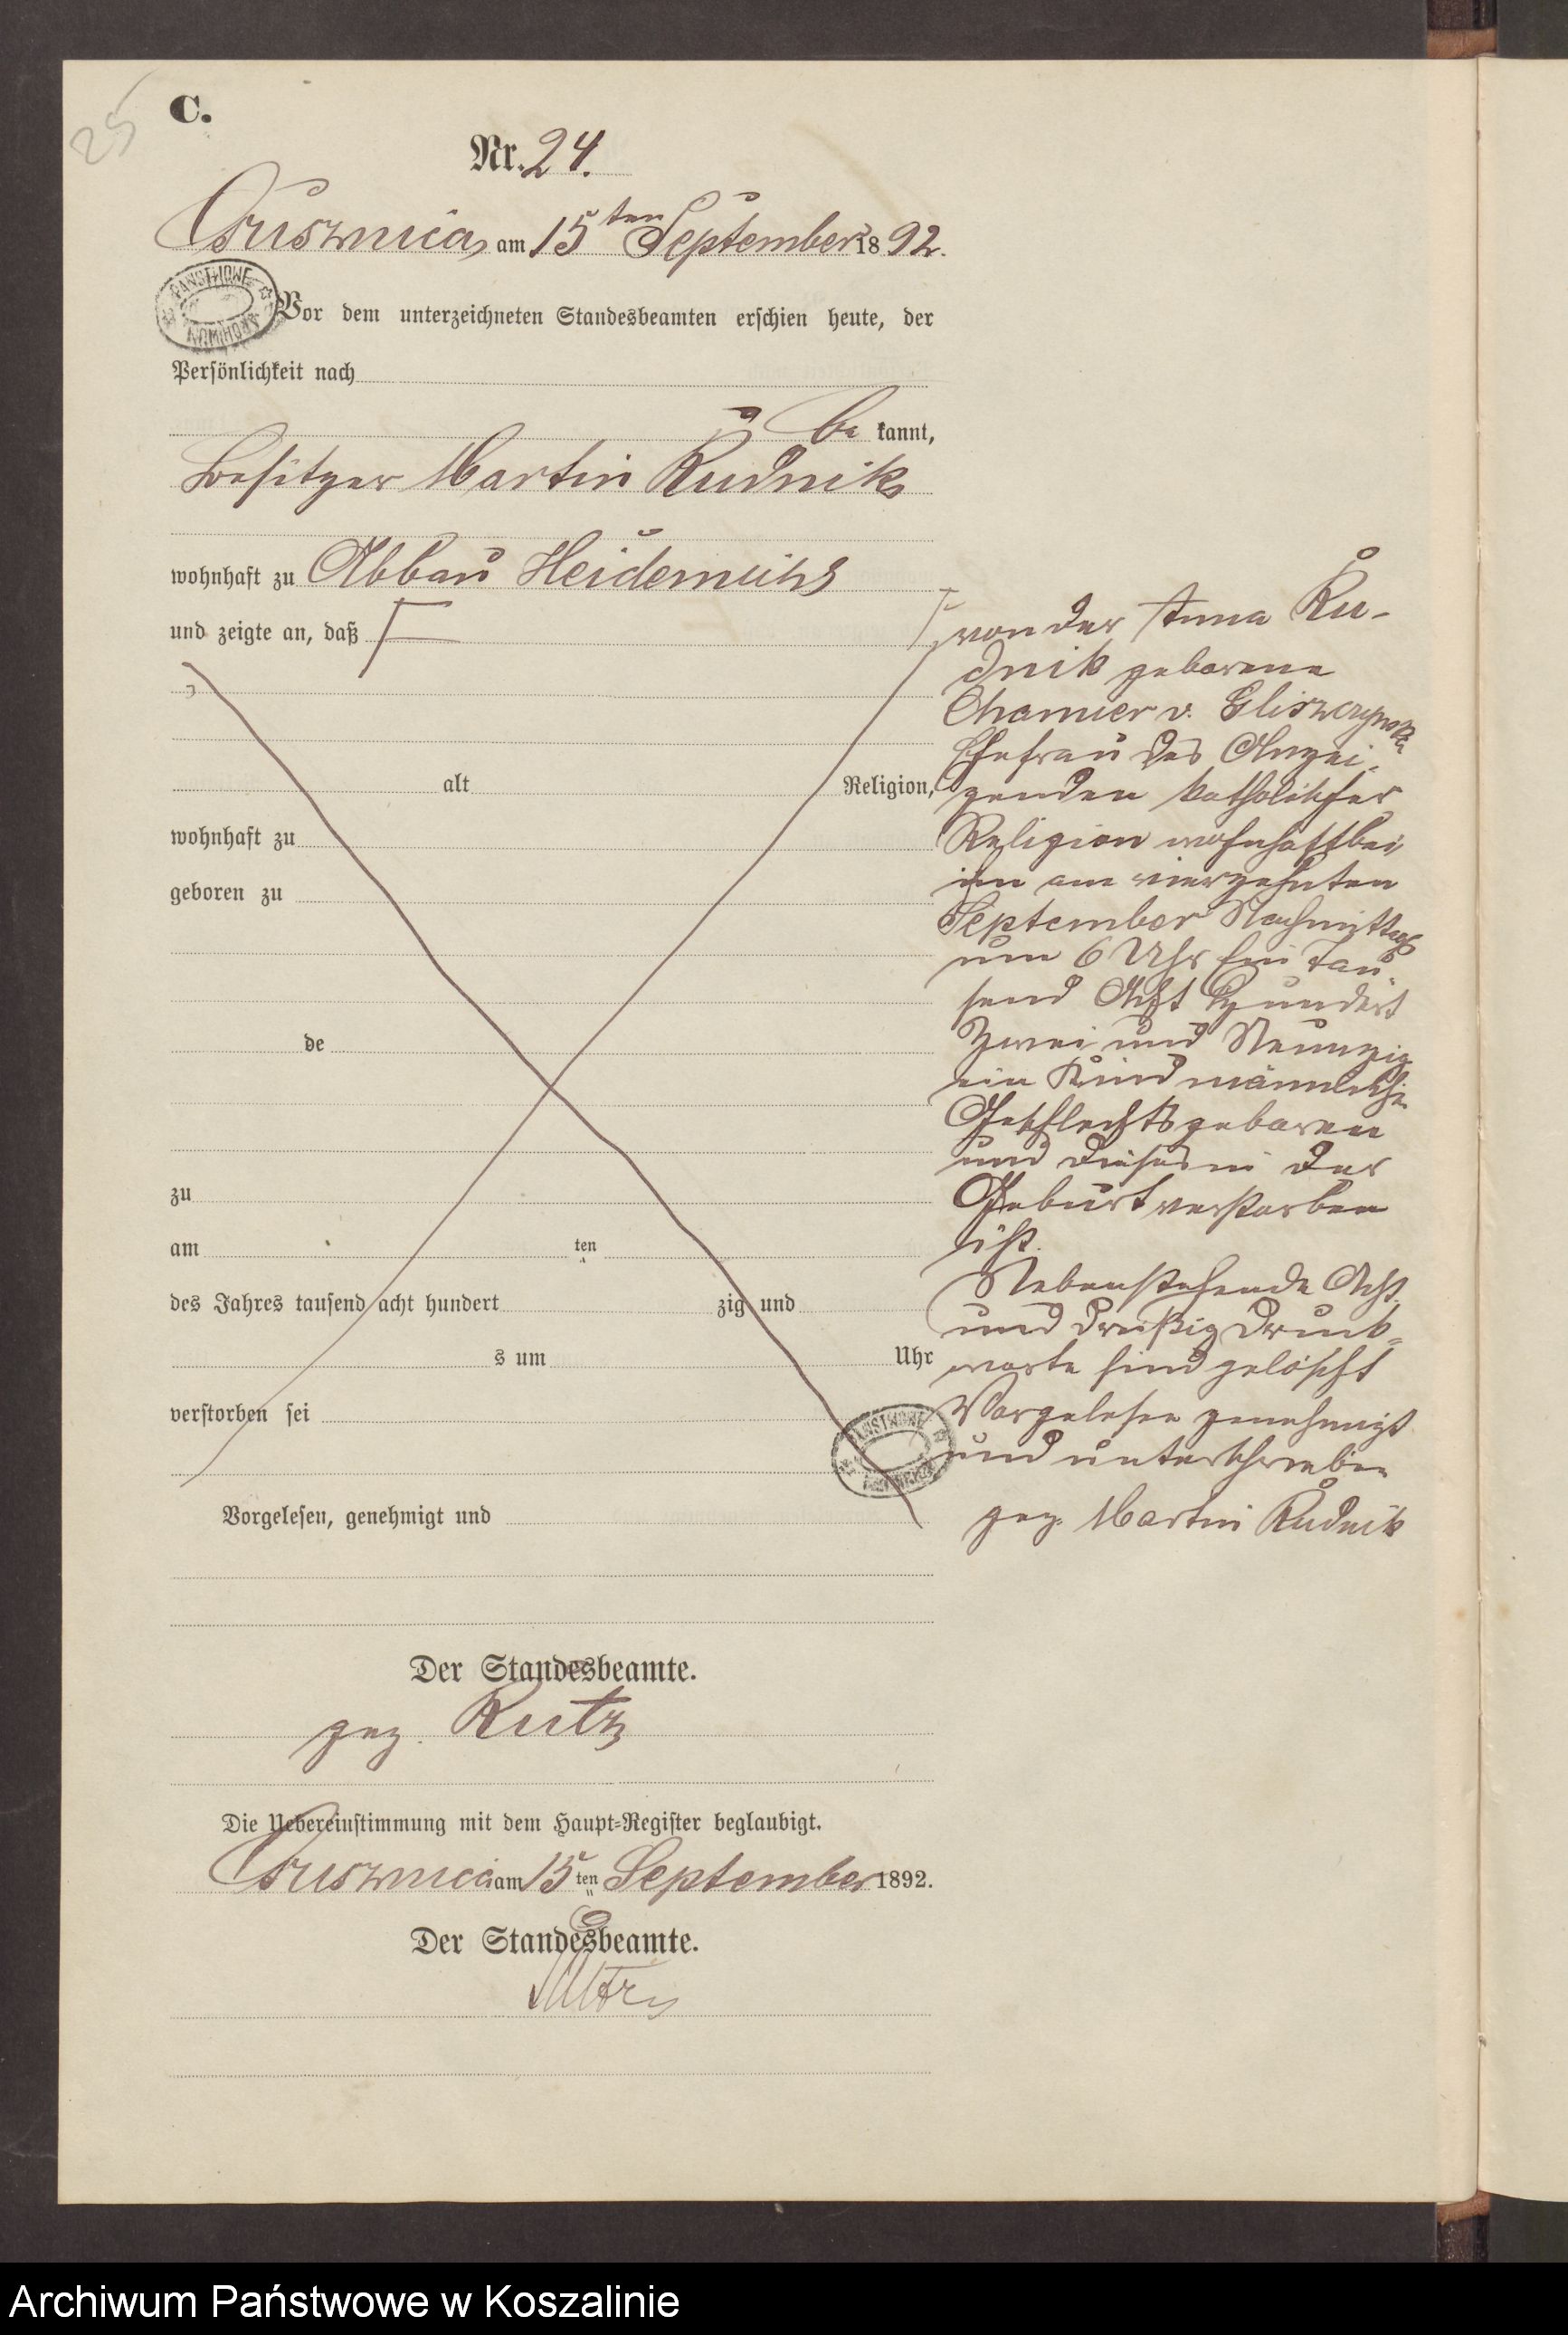 25
C.
Nr. 24.
am 15ten September 1892.
PANSTWOWE
Vor dem unterzeichneten Standesbeamten erschien heute, der
Persönlichkeit nach
be kannt,
Besitzer Martin Rudnik
wohnhaft zu Abbau Heidemühl
und zeigte an, daß
alt Religion,
wohnhaft zu
geboren zu
de
zu
am ten
des Jahres tausend acht hundert zig und
s um Uhr
verstorben sei
Vorgelesen, genehmigt und
von der Anna Ru-
dnik geborene
Chamier v. Gliszczynska
Ehefrau des Anzei-
genden katholischer
Religion wohnhaft bei
ihm am vierzehnten
September Nachmittags
um 6 Uhr Ein Tau-
send Acht Hundert
Zwei und Neunzig
ein Kind männliche
Geschlechts geboren
und dieses in der
Geburt verstorben
ist.
Nebenstehende Acht
und dreißig Druck-
worte sind gelöscht
Vorgelesen genehmigt
und unterschrieben
gez. Martin Rudnik
Der Standesbeamte.
gez. Rutz
Die Uebereinstimmung mit dem Haupt-Register beglaubigt.
am 15 ten September 1892.
Der Standesbeamte.
Archiwum Państwowe w Koszalinie